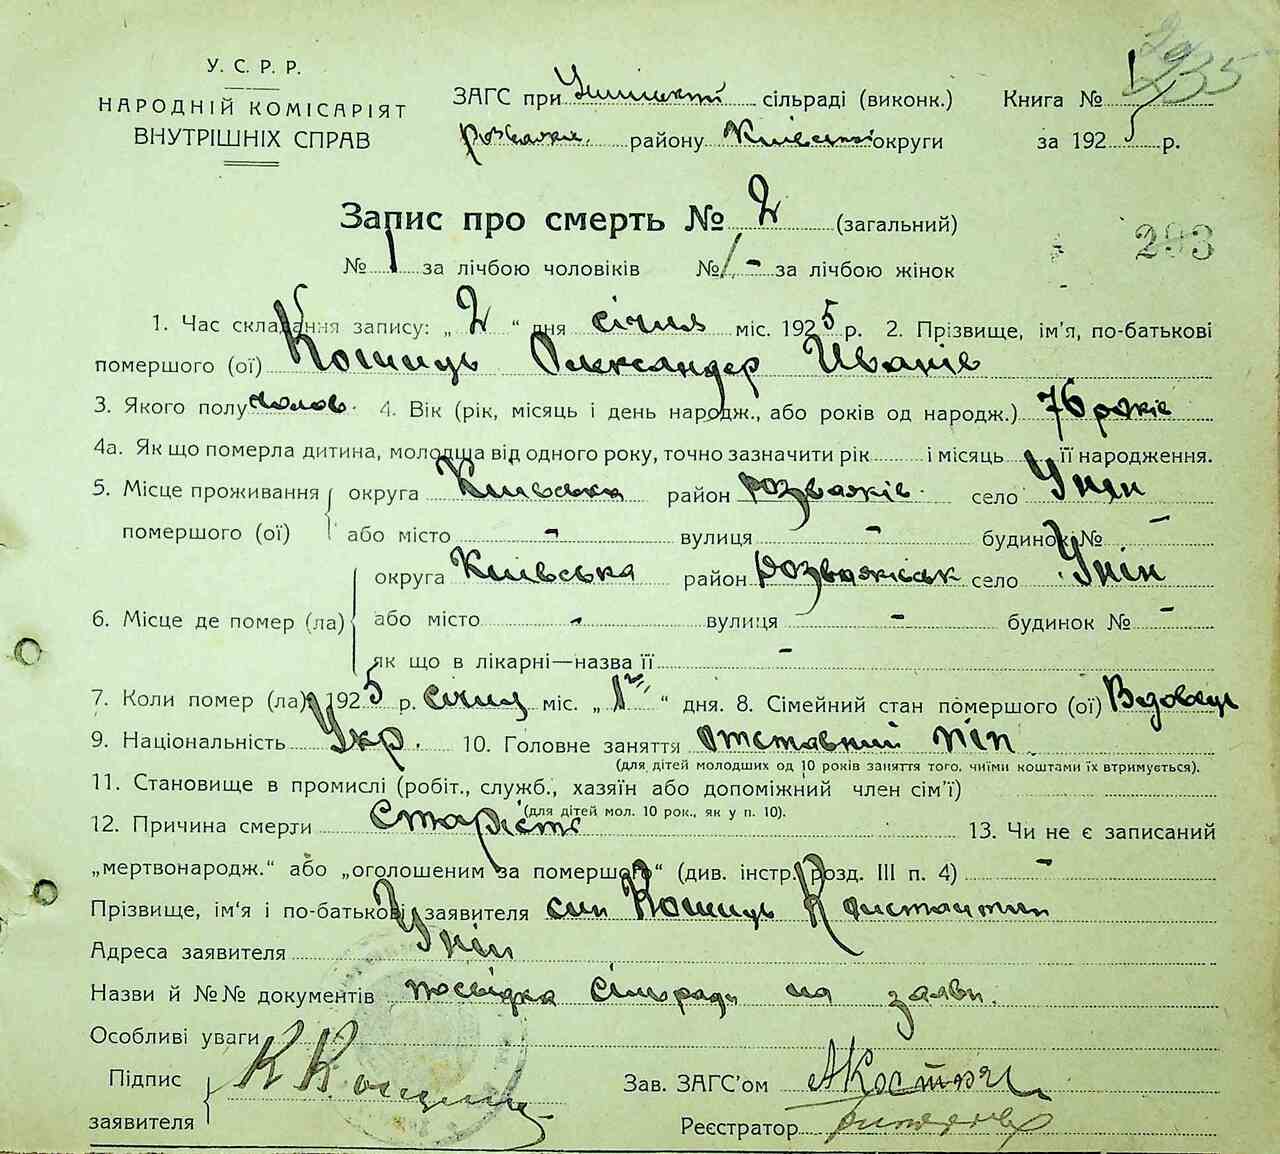 235
У. С. Р. Р.
НАРОДНІЙ КОМІСАРІЯТ
ВНУТРІШНІХ СПРАВ
ЗАГС при сільраді (виконк.)
розваж. району Київської округи
Книга № 1
за 1925 р.
Запис про смерть № 2 (загальний)
№ 1 за лічбою чоловіків № - за лічбою жінок
293
1. Час складання запису: „ 2 “ дня січня міс. 1925 р. 2. Прізвище, ім'я, по-батькові
помершого (ої) Кошиць Олександер Иванів
3. Якого полу чолов. 4. Вік (рік, місяць і день народж., або років од народж.) 76 років
4а. Як що померла дитина, молодща від одного року, точно зазначити рік і місяць її народження.
5. Місце проживання помершого (ої) округа Київська район розважів. село Унін
або місто - вулиця - будинок № -
6. Місце де помер (ла) округа Київська район розважівськ село Унін
або місто - вулиця - будинок № -
як що в лікарні—назва її -
7. Коли помер (ла) 1925 р. січня міс. „ 1 “ дня. 8. Сімейний стан помершого (ої) Вдовець
9. Національність Укр. 10. Головне заняття отставний піп
(для дітей молодших од 10 років заняття того, чиїми коштами їх втримується).
11. Становище в промислі (робіт., служб., хазяїн або допоміжний член сім'ї)
(для дітей мол. 10 рок., як у п. 10).
12. Причина смерти старість 13. Чи не є записаний
„мертвонародж.“ або „оголошеним за помершого“ (див. інстр. розд. III п. 4) -
Прізвище, ім'я і по-батькові заявителя син Кошиць Константин
Адреса заявителя Унін
Назви й №№ документів посвідка сільради на заяви.
Особливі уваги
Підпис заявителя К Кошиць
Зав. ЗАГС'ом
Реєстратор